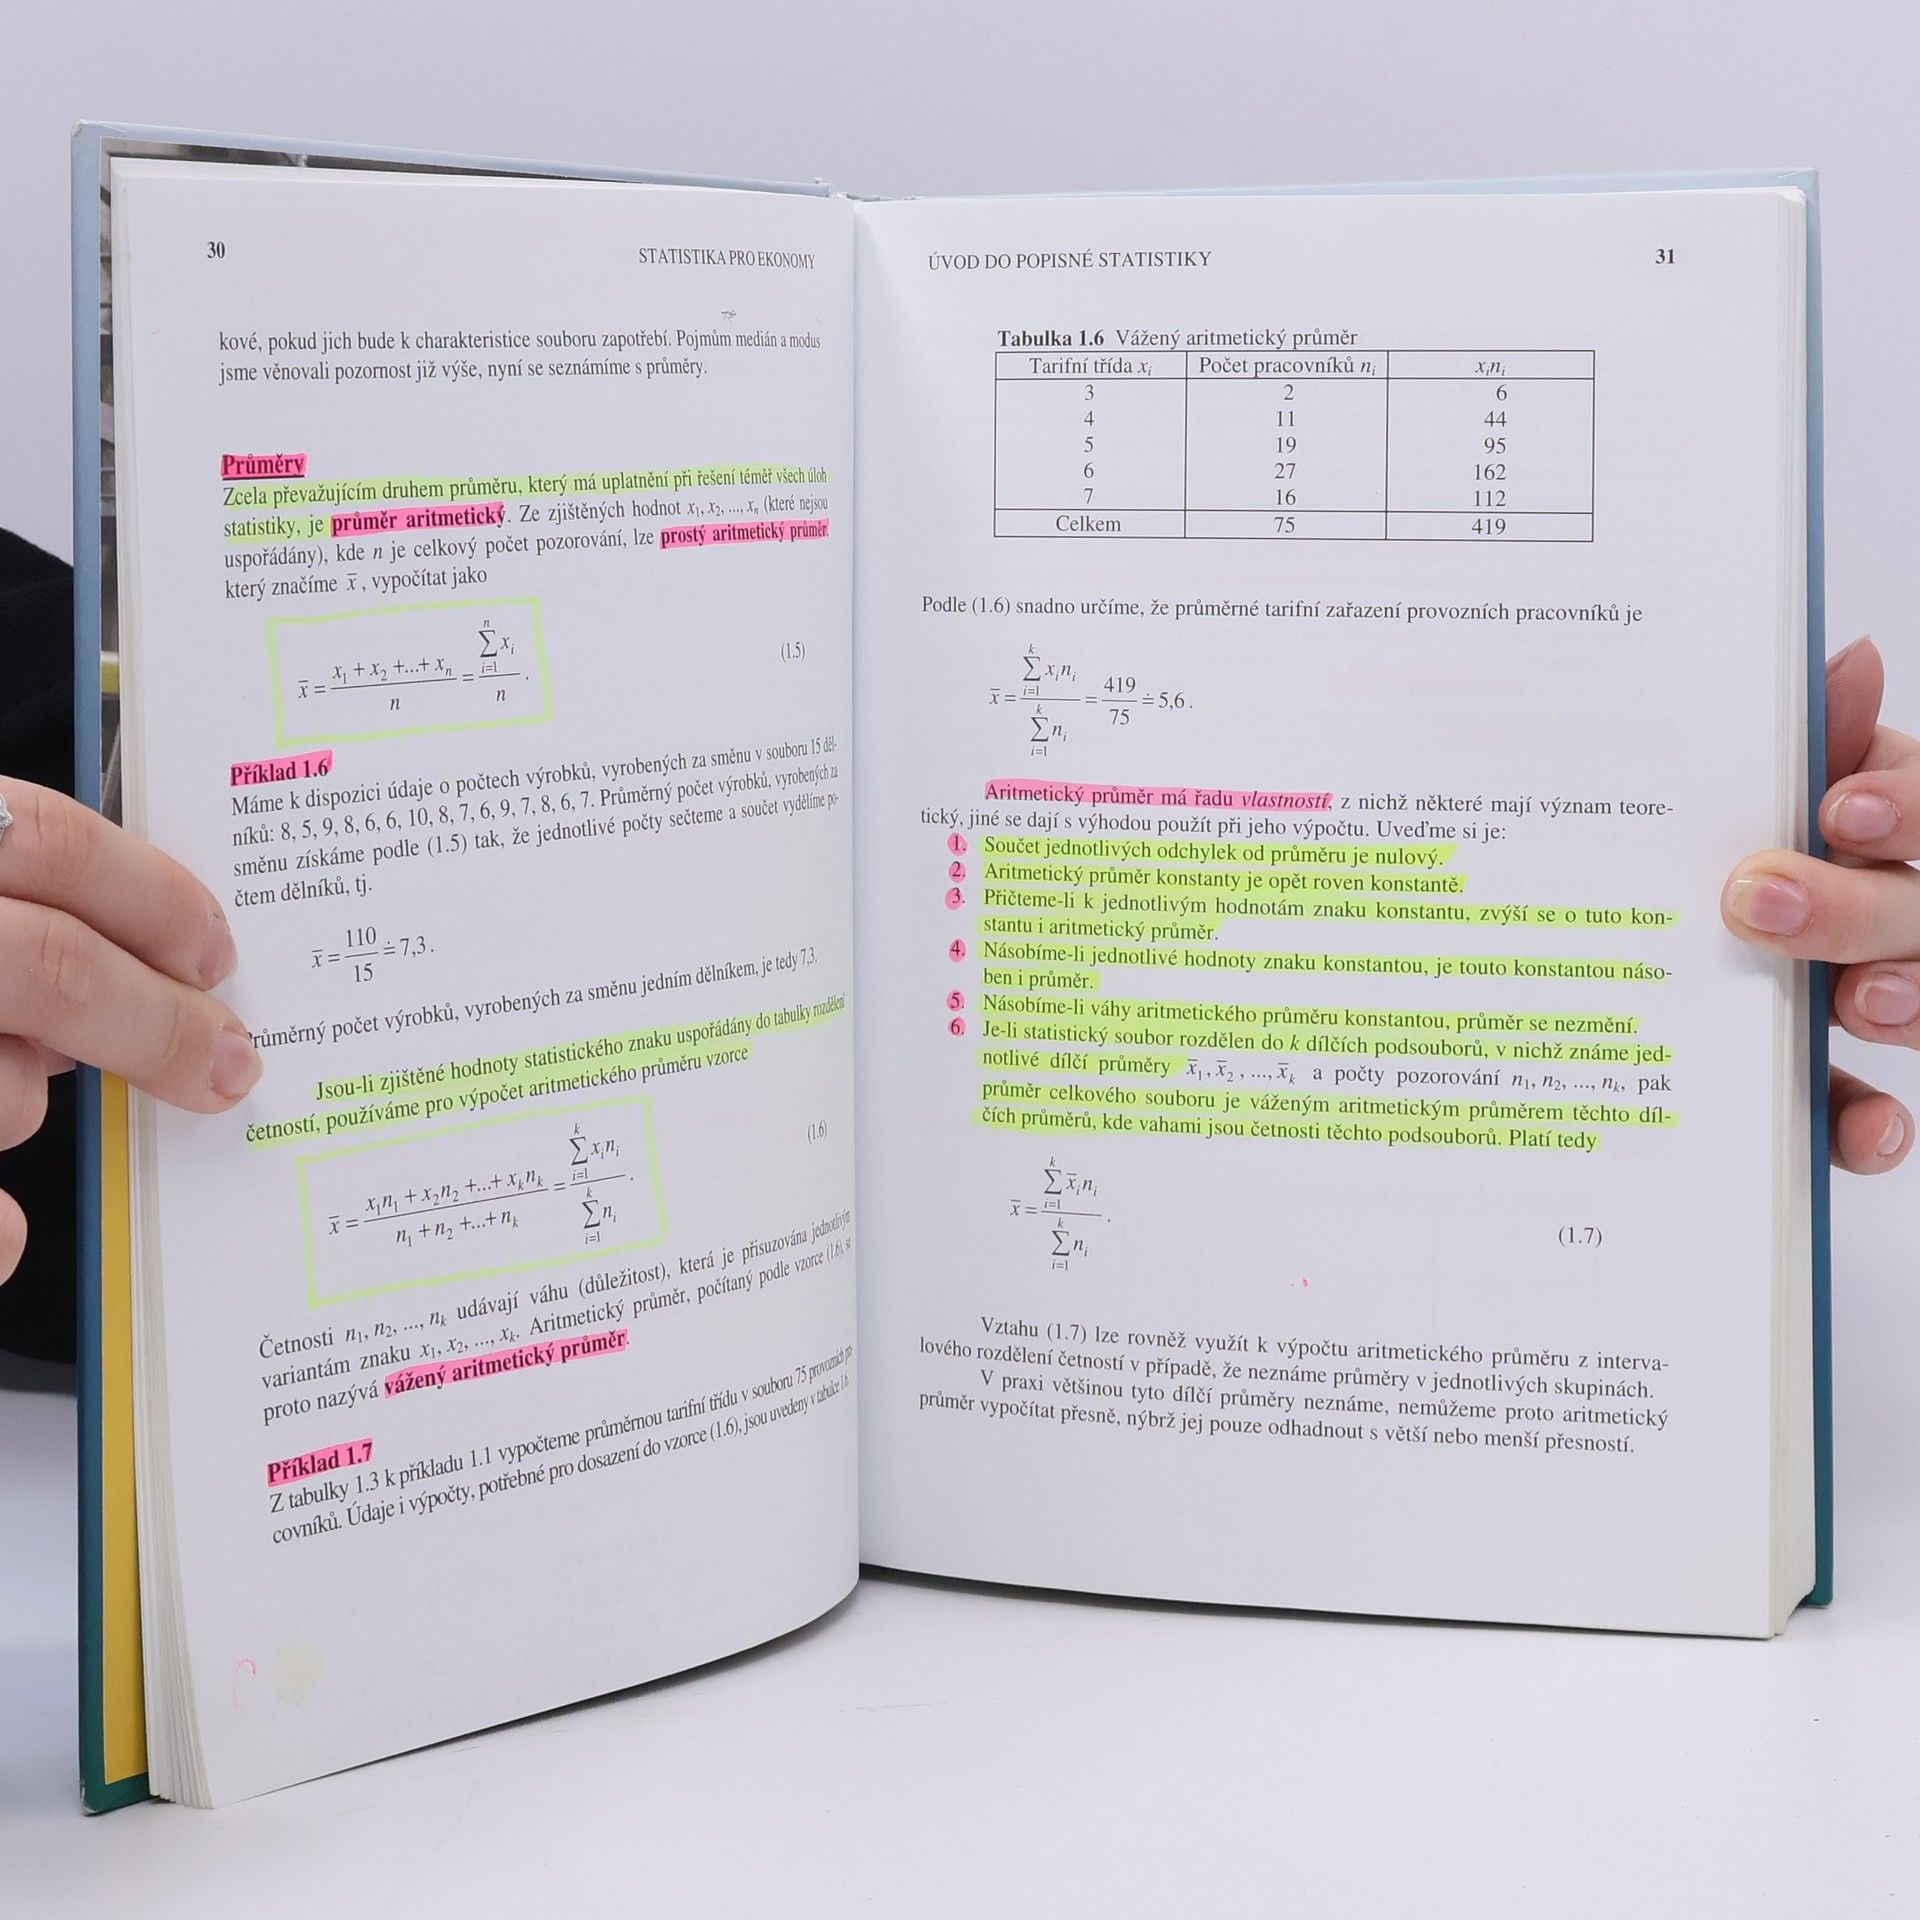 30
STATISTIKA PRO EKONOMY
kové, pokud jich bude k charakteristice souboru zapotřebí. Pojmům medián a modus
jsme věnovali pozornost již výše, nyní se seznámíme s průměry.
Průměry
Zcela převažujícím druhem průměru, který má uplatnění při řešení téměř všech úloh
statistiky, je průměr aritmetický. Ze zjištěných hodnot x₁, x₂, ..., xₙ (které nejsou
uspořádány), kde n je celkový počet pozorování, lze prostý aritmetický průměr,
který značíme x̄, vypočítat jako
x̄ = (x₁ + x₂ +...+ xₙ)/n = (∑ᵢ₌₁ⁿ xᵢ)/n . (1.5)
Příklad 1.6
Máme k dispozici údaje o počtech výrobků, vyrobených za směnu v souboru 15 děl-
níků: 8, 5, 9, 8, 6, 6, 10, 8, 7, 6, 9, 7, 8, 6, 7. Průměrný počet výrobků, vyrobených za
směnu získáme podle (1.5) tak, že jednotlivé počty sečteme a součet vydělíme po-
čtem dělníků, tj.
x̄ = 110/15 ≐ 7,3 .
růměrný počet výrobků, vyrobených za směnu jedním dělníkem, je tedy 7,3.
Jsou-li zjištěné hodnoty statistického znaku uspořádány do tabulky rozdělení
četností, používáme pro výpočet aritmetického průměru vzorce
x̄ = (x₁n₁ + x₂n₂ +...+ xₖnₖ)/(n₁ + n₂ +...+ nₖ) = (∑ᵢ₌₁ᵏ xᵢnᵢ)/(∑ᵢ₌₁ᵏ nᵢ) . (1.6)
Četnosti n₁, n₂, ..., nₖ udávají váhu (důležitost), která je přisuzována jednotlivým
variantám znaku x₁, x₂, ..., xₖ. Aritmetický průměr, počítaný podle vzorce (1.6), se
proto nazývá vážený aritmetický průměr.
Příklad 1.7
Z tabulky 1.3 k příkladu 1.1 vypočteme průměrnou tarifní třídu v souboru 75 provozních pra-
covníků. Údaje i výpočty, potřebné pro dosazení do vzorce (1.6), jsou uvedeny v tabulce 1.6.
ÚVOD DO POPISNÉ STATISTIKY
31
Tabulka 1.6 Vážený aritmetický průměr
Tarifní třída xᵢ Počet pracovníků nᵢ xᵢnᵢ
3 2 6
4 11 44
5 19 95
6 27 162
7 16 112
Celkem 75 419
Podle (1.6) snadno určíme, že průměrné tarifní zařazení provozních pracovníků je
x̄ = (∑ᵢ₌₁ᵏ xᵢnᵢ)/(∑ᵢ₌₁ᵏ nᵢ) = 419/75 ≐ 5,6 .
Aritmetický průměr má řadu vlastností, z nichž některé mají význam teore-
tický, jiné se dají s výhodou použít při jeho výpočtu. Uveďme si je:
1. Součet jednotlivých odchylek od průměru je nulový.
2. Aritmetický průměr konstanty je opět roven konstantě.
3. Přičteme-li k jednotlivým hodnotám znaku konstantu, zvýší se o tuto kon-
stantu i aritmetický průměr.
4. Násobíme-li jednotlivé hodnoty znaku konstantou, je touto konstantou náso-
ben i průměr.
5. Násobíme-li váhy aritmetického průměru konstantou, průměr se nezmění.
6. Je-li statistický soubor rozdělen do k dílčích podsouborů, v nichž známe jed-
notlivé dílčí průměry x̄₁, x̄₂, ..., x̄ₖ a počty pozorování n₁, n₂, ..., nₖ, pak
průměr celkového souboru je váženým aritmetickým průměrem těchto díl-
čích průměrů, kde vahami jsou četnosti těchto podsouborů. Platí tedy
x̄ = (∑ᵢ₌₁ᵏ x̄ᵢnᵢ)/(∑ᵢ₌₁ᵏ nᵢ) . (1.7)
Vztahu (1.7) lze rovněž využít k výpočtu aritmetického průměru z interva-
lového rozdělení četností v případě, že neznáme průměry v jednotlivých skupinách.
V praxi většinou tyto dílčí průměry neznáme, nemůžeme proto aritmetický
průměr vypočítat přesně, nýbrž jej pouze odhadnout s větší nebo menší přesností.